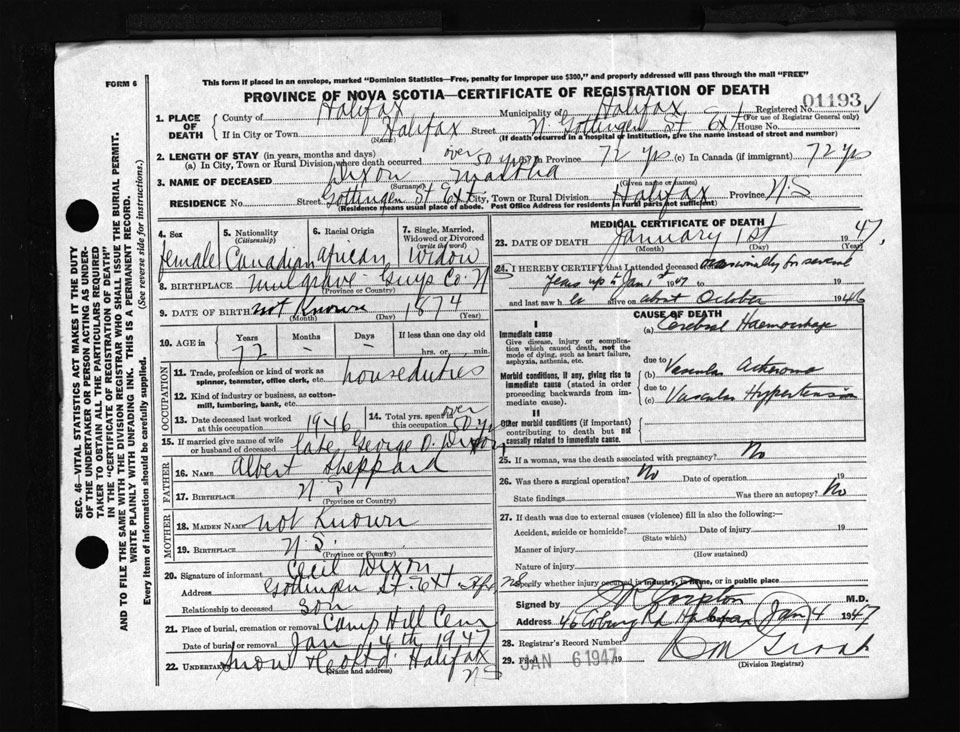 FORM 6
This form if placed in an envelope, marked "Dominion Statistics—Free, penalty for improper use $300," and properly addressed will pass through the mail "FREE"
PROVINCE OF NOVA SCOTIA—CERTIFICATE OF REGISTRATION OF DEATH
1. PLACE OF DEATH
County of Halifax Municipality of Halifax Registered No. 01193
(For use of Registrar General only)
If in City or Town Halifax Street N Gottingen St Ext House No.
(Name) (If death occurred in a hospital or institution, give the name instead of street and number)
2. LENGTH OF STAY (in years, months and days)
(a) In City, Town or Rural Division where death occurred over 50 yrs In Province 72 yrs (c) In Canada (if immigrant) 72 yrs
3. NAME OF DECEASED Dixon Martha
(Surname) (Given name or names)
RESIDENCE No. Street Gottingen St Ext City, Town or Rural Division Halifax Province N.S
(Residence means usual place of abode. Post Office Address for residents in rural parts not sufficient)
4. Sex female
5. Nationality (Citizenship) Canadian
6. Racial Origin african
7. Single, Married, Widowed or Divorced (write the word) Widow
8. BIRTHPLACE Mulgrave Guys Co N
(Province or Country)
9. DATE OF BIRTH not Known 1874
(Month) (Day) (Year)
10. AGE in Years Months Days If less than one day old
72 - - hrs. or min.
OCCUPATION
11. Trade, profession or kind of work as spinner, teamster, office clerk, etc. houseduties
12. Kind of industry or business, as cotton-mill, lumbering, bank, etc.
13. Date deceased last worked at this occupation 1946
14. Total yrs. spent in this occupation over 50 yrs
15. If married give name of wife or husband of deceased late George O. Dixon
FATHER
16. NAME Albert Sheppard
17. BIRTHPLACE N S
(Province or Country)
MOTHER
18. MAIDEN NAME not Known
19. BIRTHPLACE N. S.
(Province or Country)
20. Signature of informant Cecil Dixon
Address Gottingen St. Ext Hfx, NS
Relationship to deceased son
21. Place of burial, cremation or removal Camp Hill Cem
Date of burial or removal Jan 4th 1947
22. UNDERTAKER Snow & Co Ltd Halifax N S
(Name and address)
MEDICAL CERTIFICATE OF DEATH
23. DATE OF DEATH January 1st 1947
(Month) (Day)
24. I HEREBY CERTIFY that I attended deceased occasionally for several
years up to Jan 1st 1947 19
and last saw h er alive on about October 1946
CAUSE OF DEATH
I
Immediate cause
Give disease, injury or complication which caused death, not the mode of dying, such as heart failure, asphyxia, asthenia, etc.
(a) Cerebral Haemorrhage
due to
Morbid conditions, if any, giving rise to immediate cause (stated in order proceeding backwards from immediate cause).
(b) Vascular
due to
(c) Vascular Hypertension
II
Other morbid conditions (if important) contributing to death but not causally related to immediate cause.
25. If a woman, was the death associated with pregnancy? No
26. Was there a surgical operation? No Date of operation 19
State findings Was there an autopsy? No
27. If death was due to external causes (violence) fill in also the following:—
Accident, suicide or homicide? Date of injury 19
(State which)
Manner of injury
(How sustained)
Nature of injury
Specify whether injury occurred in industry, in home, or in public place
Signed by M.D.
Address 46 Coburg Rd Halifax Jan 4 1947
28. Registrar's Record Number
29. Filed JAN 6 1947 19
(Division Registrar)
SEC. 46—VITAL STATISTICS ACT MAKES IT THE DUTY
OF THE UNDERTAKER OR PERSON ACTING AS UNDER-
TAKER TO OBTAIN ALL THE PARTICULARS REQUIRED
IN THE "CERTIFICATE OF REGISTRATION OF DEATH"
AND TO FILE THE SAME WITH THE DIVISION REGISTRAR WHO SHALL ISSUE THE BURIAL PERMIT.
WRITE PLAINLY WITH UNFADING INK. THIS IS A PERMANENT RECORD.
Every item of information should be carefully supplied. (See reverse side for instructions.)